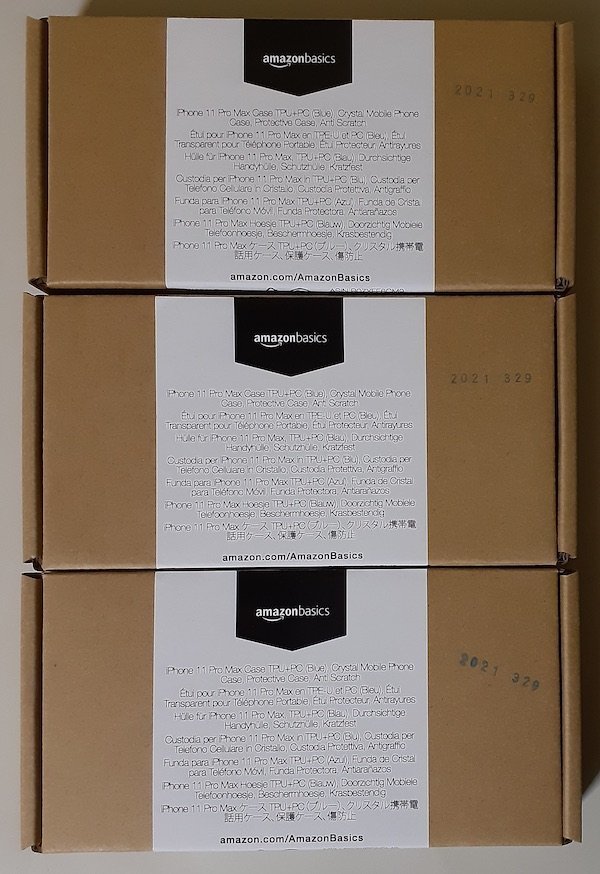 amazonbasics
2021 329
iPhone 11 Pro Max Case TPU+PC (Blue), Crystal Mobile Phone
Case, Protective Case, Anti Scratch
Étui pour iPhone 11 Pro Max en TPE-U et PC (Bleu), Étui
Transparent pour Téléphone Portable, Étui Protecteur, Antirayures
Hülle für iPhone 11 Pro Max, TPU+PC (Blau), Durchsichtige
Handyhülle, Schutzhülle, Kratzfest
Custodia per iPhone 11 Pro Max in TPU+PC (Blu), Custodia per
Telefono Cellulare in Cristallo, Custodia Protettiva, Antigraffio
Funda para iPhone 11 Pro Max TPU+PC (Azul), Funda de Cristal
para Teléfono Móvil, Funda Protectora, Antiarañazos
iPhone 11 Pro Max Hoesje TPU+PC (Blauw), Doorzichtig Mobiele
Telefoonhoesje, Beschermhoesje, Krasbestendig
iPhone 11 Pro Max ケース TPU+PC (ブルー)、クリスタル携帯電
話用ケース、保護ケース、傷防止
amazon.com/AmazonBasics
amazonbasics
2021 329
iPhone 11 Pro Max Case TPU+PC (Blue), Crystal Mobile Phone
Case, Protective Case, Anti Scratch
Étui pour iPhone 11 Pro Max en TPE-U et PC (Bleu), Étui
Transparent pour Téléphone Portable, Étui Protecteur, Antirayures
Hülle für iPhone 11 Pro Max, TPU+PC (Blau), Durchsichtige
Handyhülle, Schutzhülle, Kratzfest
Custodia per iPhone 11 Pro Max in TPU+PC (Blu), Custodia per
Telefono Cellulare in Cristallo, Custodia Protettiva, Antigraffio
Funda para iPhone 11 Pro Max TPU+PC (Azul), Funda de Cristal
para Teléfono Móvil, Funda Protectora, Antiarañazos
iPhone 11 Pro Max Hoesje TPU+PC (Blauw), Doorzichtig Mobiele
Telefoonhoesje, Beschermhoesje, Krasbestendig
iPhone 11 Pro Max ケース TPU+PC (ブルー)、クリスタル携帯電
話用ケース、保護ケース、傷防止
amazon.com/AmazonBasics
amazonbasics
2021 329
iPhone 11 Pro Max Case TPU+PC (Blue), Crystal Mobile Phone
Case, Protective Case, Anti Scratch
Étui pour iPhone 11 Pro Max en TPE-U et PC (Bleu), Étui
Transparent pour Téléphone Portable, Étui Protecteur, Antirayures
Hülle für iPhone 11 Pro Max, TPU+PC (Blau), Durchsichtige
Handyhülle, Schutzhülle, Kratzfest
Custodia per iPhone 11 Pro Max in TPU+PC (Blu), Custodia per
Telefono Cellulare in Cristallo, Custodia Protettiva, Antigraffio
Funda para iPhone 11 Pro Max TPU+PC (Azul), Funda de Cristal
para Teléfono Móvil, Funda Protectora, Antiarañazos
iPhone 11 Pro Max Hoesje TPU+PC (Blauw), Doorzichtig Mobiele
Telefoonhoesje, Beschermhoesje, Krasbestendig
iPhone 11 Pro Max ケース TPU+PC (ブルー)、クリスタル携帯電
話用ケース、保護ケース、傷防止
amazon.com/AmazonBasics